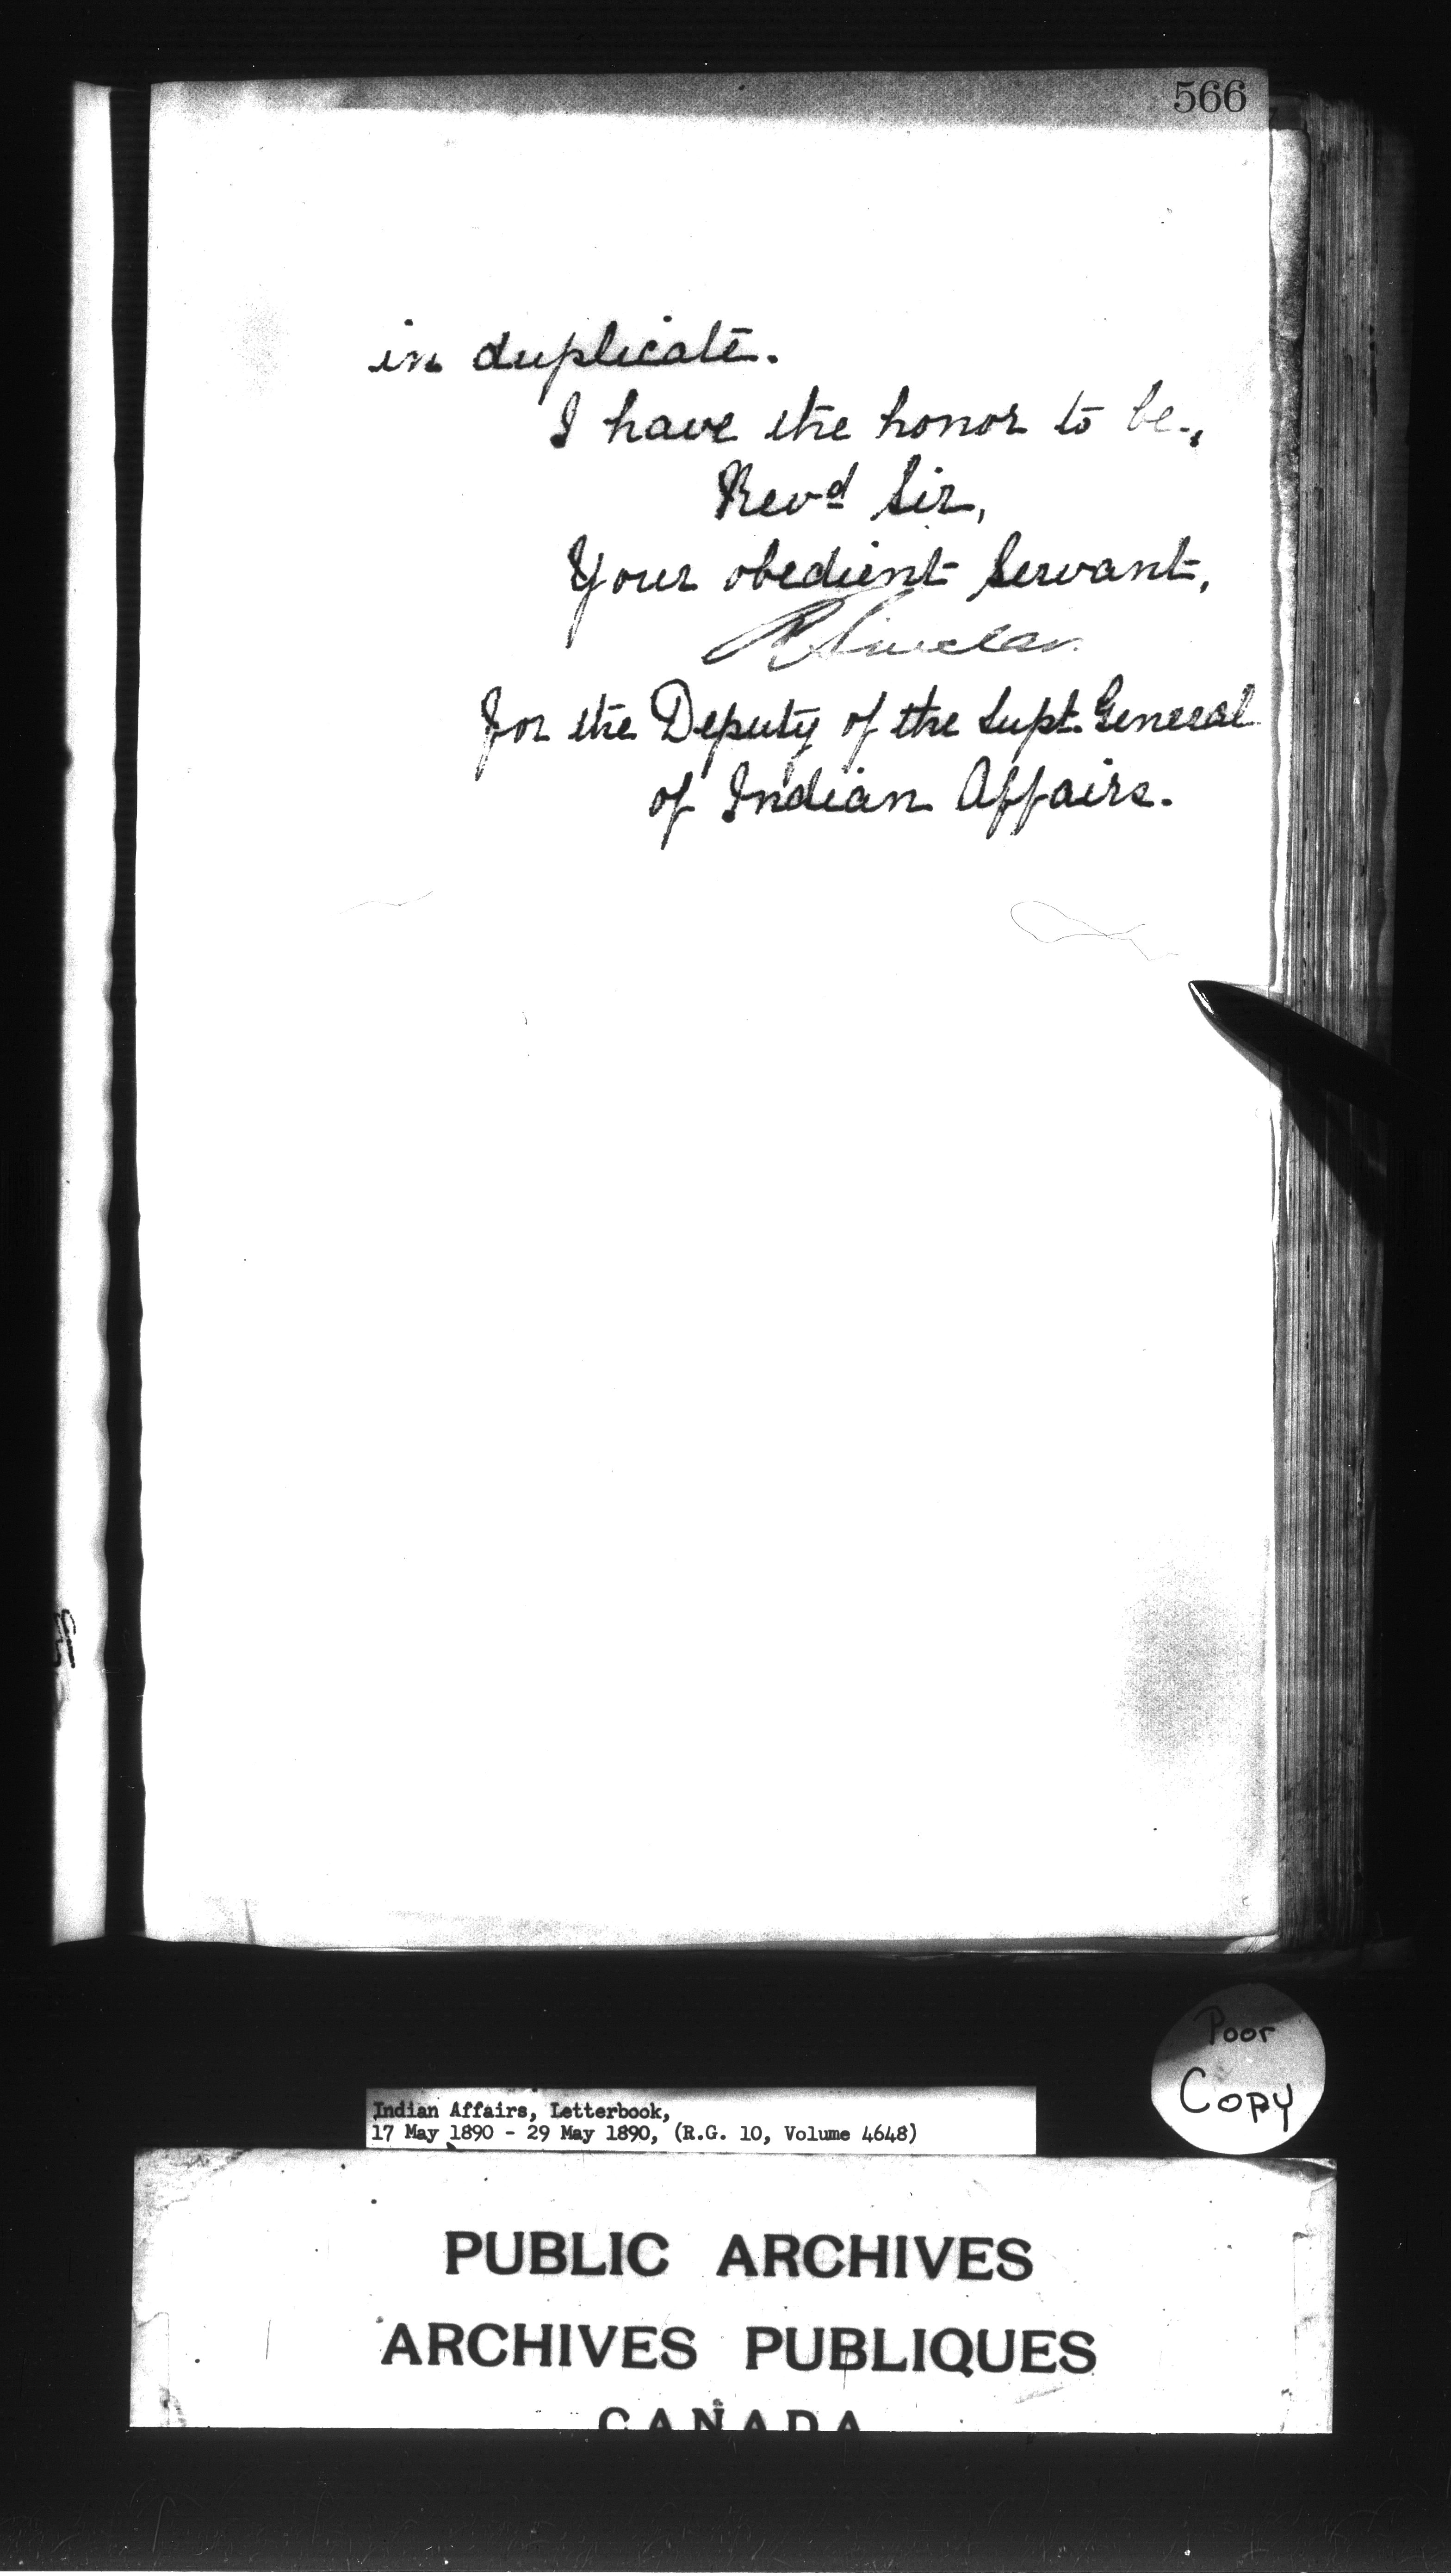 566
in duplicate.
I have the honor to be,
Revd Sir,
Your obedient Servant,
R Sinclair
for the Deputy of the Supt. General
of Indian Affairs.
Poor
Copy
Indian Affairs, Letterbook,
17 May 1890 - 29 May 1890, (R.G. 10, Volume 4648)
PUBLIC ARCHIVES
ARCHIVES PUBLIQUES
CANADA